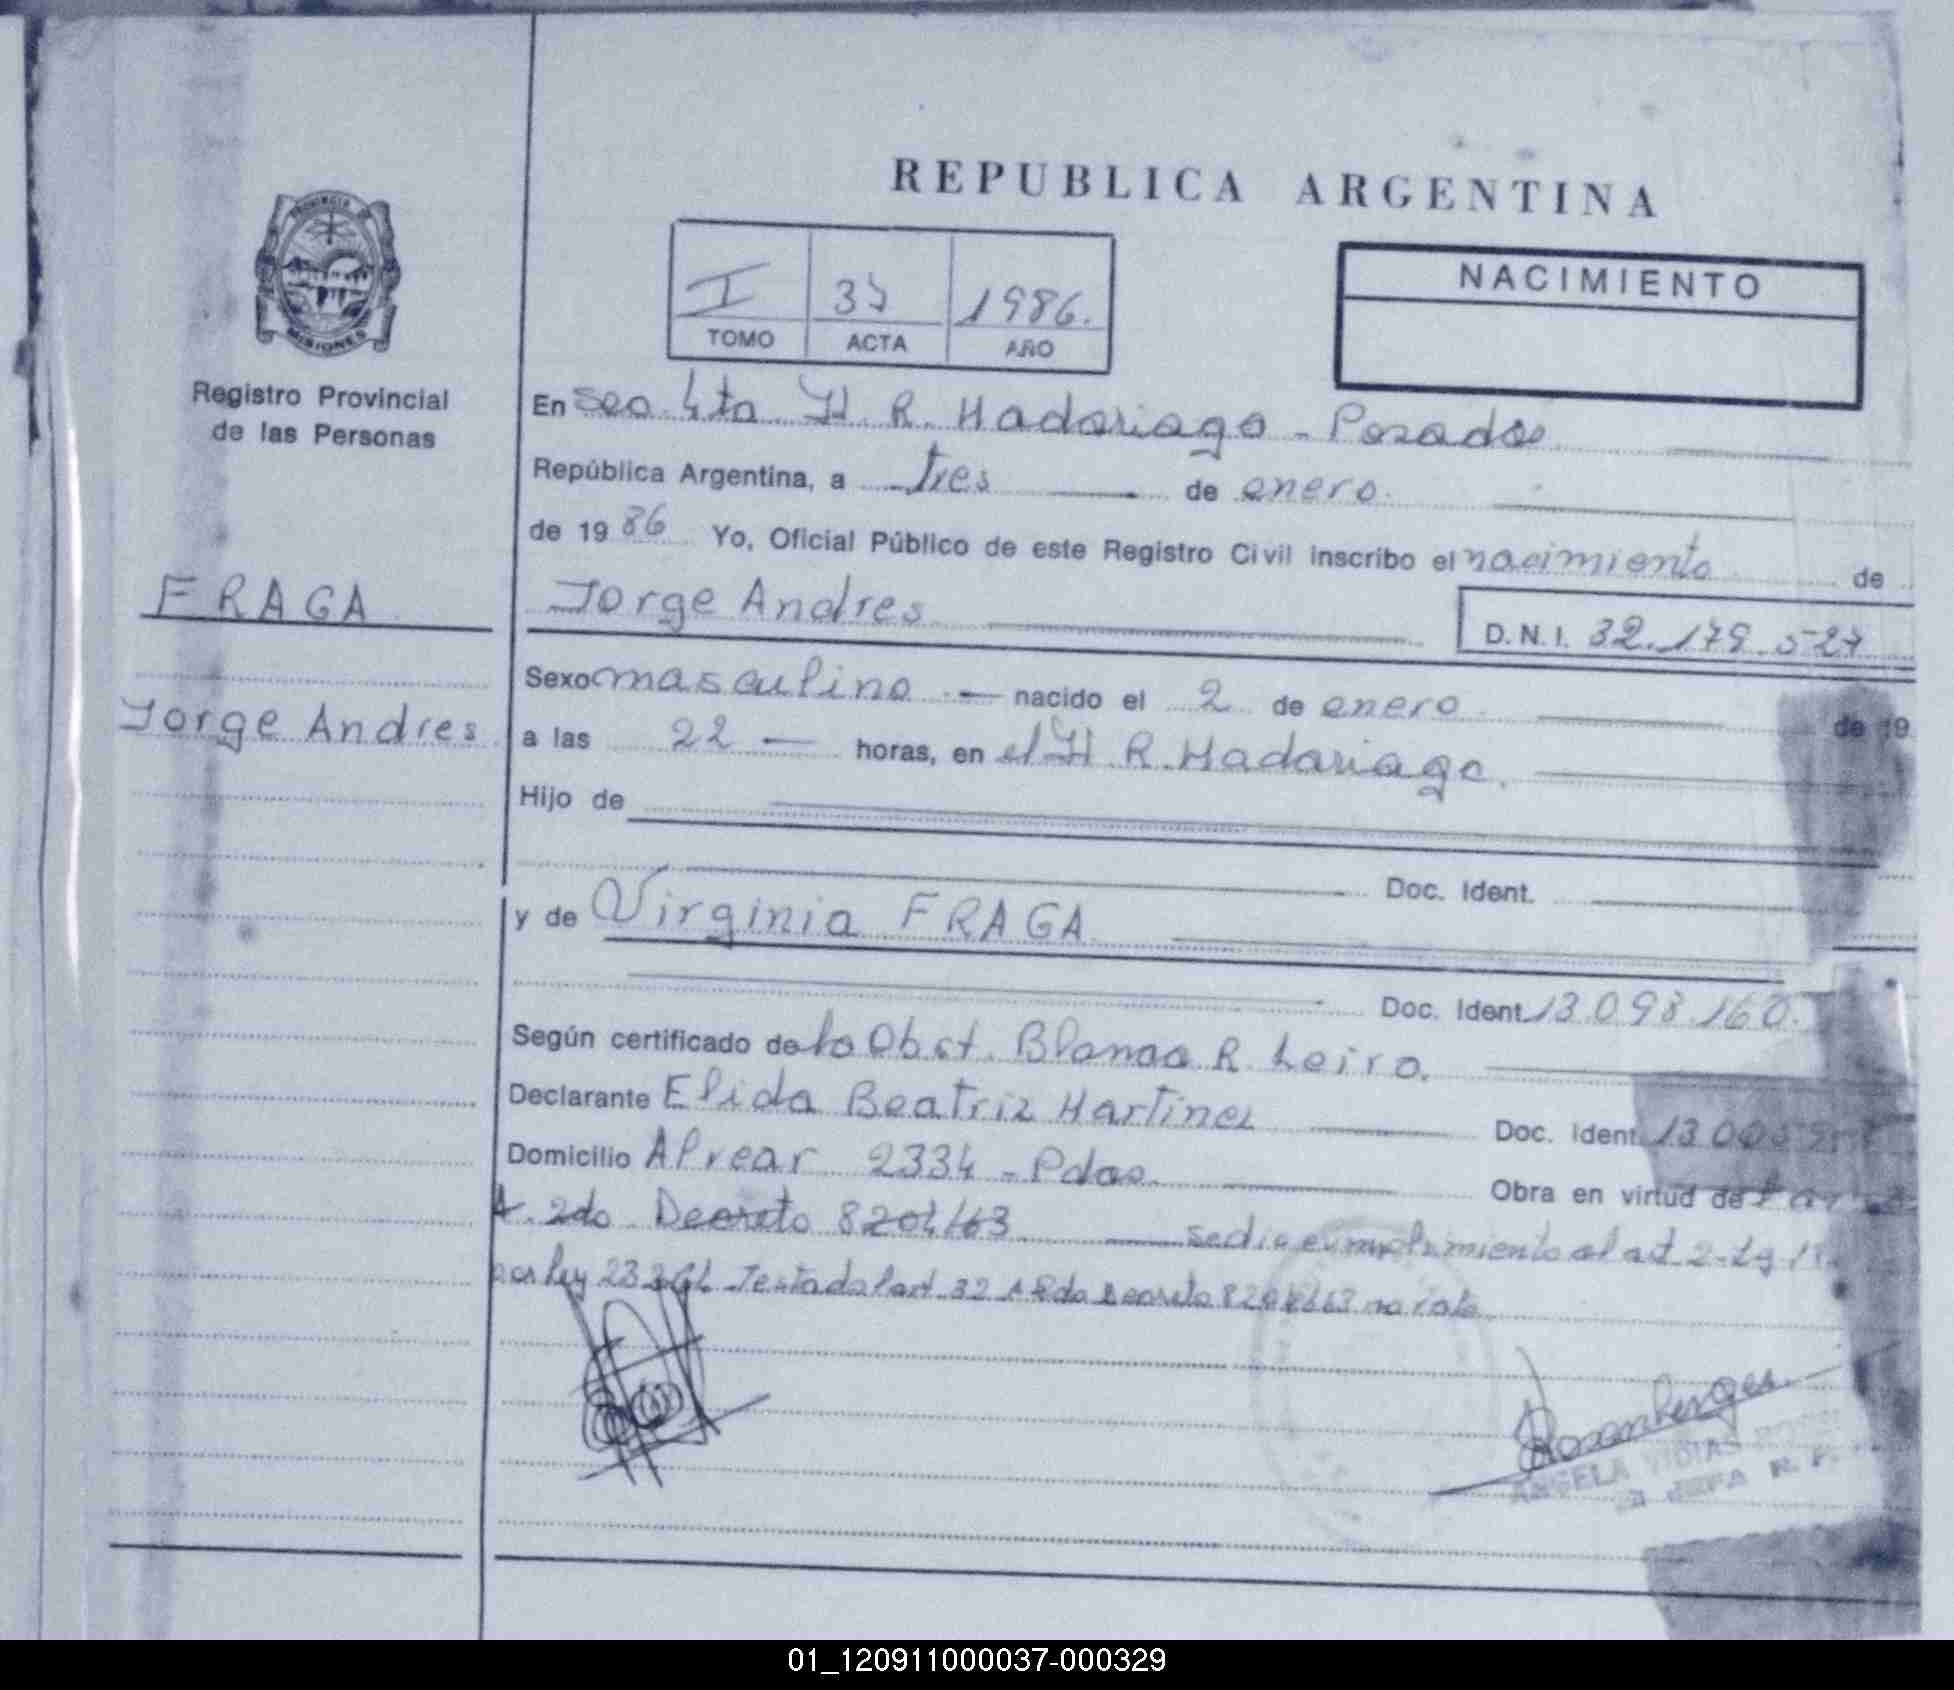 REPUBLICA ARGENTINA
PROVINCIA DE
MISIONES
Registro Provincial
de las Personas
I
1986.
TOMO ACTA AÑO
NACIMIENTO
En Sec. 4ta H. R. Madariaga - Posadas
República Argentina, a tres de enero.
de 19 86 Yo, Oficial Público de este Registro Civil inscribo el nacimiento de
FRAGA
Jorge Andres
D.N.I. 32.179.527
Sexo masculino nacido el 2 de enero de 19
Jorge Andres
a las 22 horas, en el H. R. Madariaga.
Hijo de
Doc. Ident.
y de Virginia FRAGA
Doc. Ident. 13.098.160.
Según certificado de la Obst. Blanca R. Leiro.
Declarante Elida Beatriz Martinez Doc. Ident. 13.00
Domicilio Alvear 2334 - Pdas. Obra en virtud de
A. 2do Decreto 8204/63 se dio cumplimiento al art 2
por ley Testado art 32 Decreto 8204/63 no vale
Rosenberger
ANGELA
JEFA R. P.
01_120911000037-000329